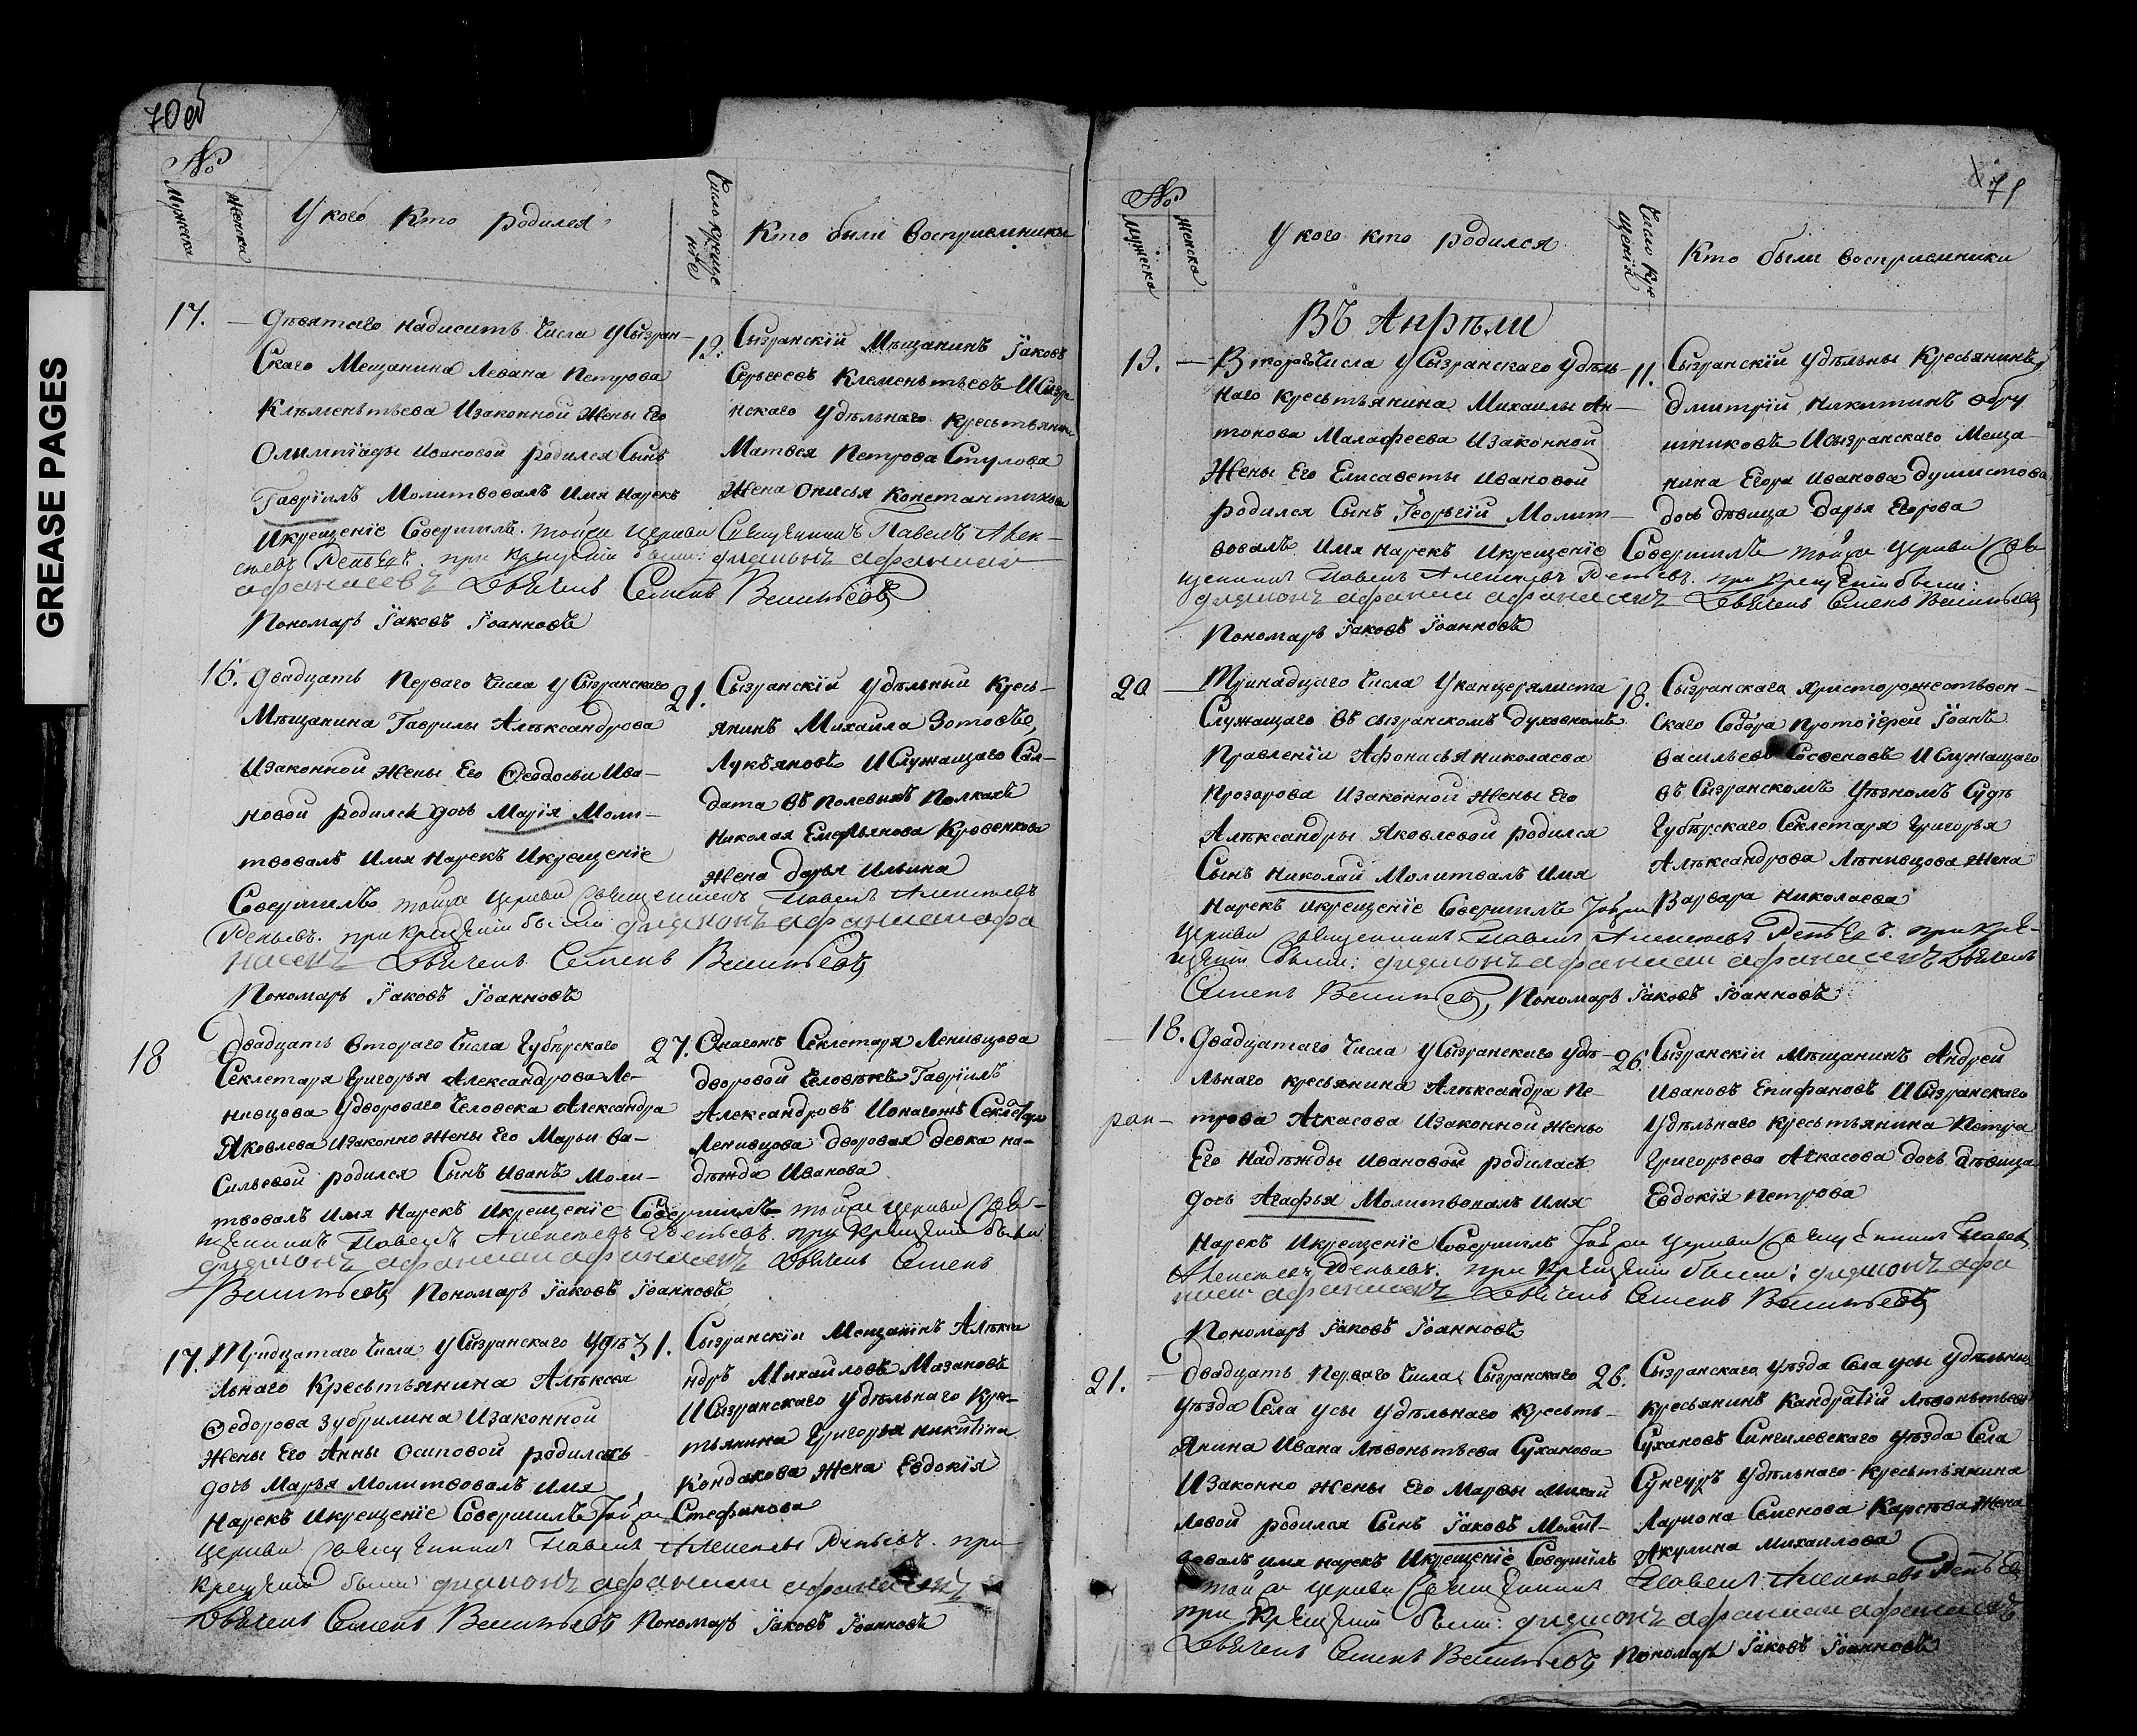 GREASE PAGES
70 об
№
Мужеска
Женска
У кого Кто родился
Число крещенїе
Кто были восприемники
17. Девятаго надесить Числа у Сызран-
скаго Мещанина Левана Петрова
Клементьева Изаконной Жены Его
Олимпїады Ивановой родился Сынъ
Гаврїилъ Молитвовалъ Имя Нарекъ
Икрещенїе Совершилъ тойже церкви Священникъ Павелъ Алек-
сеевъ Репьевъ. при крещенїи были: дїаконъ афанасїй
афанасїевъ Дьячекъ Семенъ Васильевъ
Пономарь Їаковъ Їоанновъ
19. Сызранскїй Мѣщанинъ Їаковъ
Сергѣевъ Клементьевъ И Сызра
нскаго удѣльнаго кресьтьянина
Матвея Петрова Стулова
Жена Онисья Константинова
16. Двадцать Перваго Числа у Сызранскаго
Мѣщанина Гаврилы Алѣксандрова
Изаконной жены Его Ѳеодосьи Ива-
новой родилсѧ дочь Марїя Моли-
твовалъ Имя Нарекъ Икрещенїе
Совершилъ тойже церкви священникъ Павелъ Алексѣевъ
Репьевъ. при крещенїи были дїаконъ афанасїй афа
насїевъ Дьячекъ Семенъ Васильевъ
Пономарь Їаковъ Їоанновъ
21. Сызранскїй удѣльный Кресь-
янинъ Михайла Зотовъ
Лукьяновъ И Служащаго Сол-
дата въ Полевыхъ Полкахъ
Николая Емельянова Кровенкова
жена Дарья Ильина
18 Двадцать втораго Числа Губѣрскаго
Секлетаря Григорья Александрова Ле-
нивцова удвороваго Человека Александра
Яковлева Изаконно Жены Его Марьи Ва-
сильевой родился Сынъ Иванъ Моли-
твовалъ Имя Нарекъ Икрещенїе Совершилъ тойже церкви Свя-
щенникъ Павелъ Алексѣевъ Репьевъ. при крещенїи были
дїаконъ афанасїй афанасїевъ Дьячекъ Семенъ
Васильевъ Пономарь Їаковъ Їоанновъ
27. Онагожъ Секлетаря Ленивцова
дворовой Человѣкъ Гаврїилъ
Александровъ Ионагожъ Секлетаря
Ленивцова дворовая девка на-
дѣжда Иванова
17. Тридцатаго Числа у Сызранскаго удѣ-
льнаго Кресьтьянина Алѣксея
Ѳедорова Зубрилина Изаконной
Жены Его Анны Осиповой родилась
дочь Марья Молитвовалъ Имя
Нарекъ Икрещенїе Совершилъ Тойже
церкви священникъ Павелъ Алексѣевъ Репьевъ. при
крещенїи были дїаконъ афанасїй афанасїевъ
Дьячекъ Семенъ Васильевъ Пономарь Їаковъ Їоанновъ
31. Сызранскїй Мещанинъ Алѣкса
ндръ Михайловъ Мазановъ
И Сызранскаго удѣльнаго Кре-
тьянина Григорья Никитина
Кандакова Жена Евдокїя
Стефанова
71
№
Мужеска
Женска
У кого кто родился
Число Кре
щенїя
Кто были восприемники
Въ Апрѣли
19. Втораго Числа у Сызранскаго удѣль-
наго Кресьтьянина Михайлы Ан-
тонова Малафеева Изаконной
Жены Его Елисаветы Ивановой
родился Сынъ Георьгїй Молит-
вовалъ Имя нарекъ Икрещенїе Совершилъ тойже церкви Свя
щенникъ Павелъ Алексѣевъ Репьевъ. при крещенїи были:
дїаконъ афанасїй афанасїевъ Дьячекъ Семенъ Васильевъ
Пономарь Їаковъ Їоанновъ
11. Сызранскїй удѣльны Кресьянинъ
Дмитрїй Никитинъ Обру
шниковъ Исызранскаго Меща-
нина Егора Иванова Душистова
дочь дѣвица Дарья Егорова
20 Тринадцаго Числа у канцерялиста
Служащаго въ сызранскомъ духовномъ
Правленїи Афонасья николаева
Прозорова Изаконной Жены Его
Алѣксандры Яковлевой родился
Сынъ Николай Молитвалъ Имя
Нарекъ Икрещенїе Совершилъ Тойже
церкви Священникъ Павелъ Алексѣевъ Репьевъ. при кре-
щенїи были: дїаконъ афанасїй афанасїевъ Дьячекъ
Семенъ Васильевъ, Пономарь Їаковъ Їоанновъ
18. Сызранскаго Христорожественн-
скаго Собора Протоїерей Їоанъ
Васильевъ И Служащаго
въ Сызранскомъ Уѣзномъ Судѣ
Губѣрскаго Секлетаря Григорья
Алѣксандрова Лѣнивцова Жена
Варвара Николаева
18. Двадцатаго Числа у Сызранскаго удѣ-
льнаго кресьянина Алѣксандра Пе-
трова Аѵкасова Изаконной жены
Его Надѣжды Ивановой родиласѣ
дочь Агафья Молитвовалъ Имя
Нарекъ Икрещенїе Совершилъ Тойже церкви Священникъ Павелъ
Алексѣевъ Репьевъ. при крещенїи были: дїаконъ афа
насїй афанасїевъ Дьячекъ Семенъ Васильевъ
Пономарь Їаковъ Їоанновъ
26. Сызранскїй Мѣщанинъ Андрей
Ивановъ Епифановъ И Сызранскаго
Удѣльнаго Кресьтьянина Петра
Григорьева Аѵкасова дочь дѣвица
Евдокїя Петрова
21. Двадцать Перваго Числа Сызранскаго
уѣзда Села Усы Удѣльнаго Кресьть-
янина Ивана Лѣвоньтьева Суханова
Изаконно жены Его Марвы Михай
ловой родился Сынъ Їаковъ Молит-
вовалъ имя нарекъ Икрещенїе Совершилъ
той же церкви Священникъ Павелъ Алексѣевъ Репьевъ
при крещенїи были: дїаконъ афанасїй афанасїевъ
Дьячекъ Семенъ Васильевъ Пономарь Їаковъ Їоанновъ
26. Сызранскаго уѣзда Села Усы Удѣльны
Кресьянинъ Кандратїй Лѣвоньтьевъ
Сухановъ Сингилевскаго уѣзда Села
Сунгуръ Удѣльнаго Кресьтьянина
Лариона Семенова Жена
Акулина Михайлова